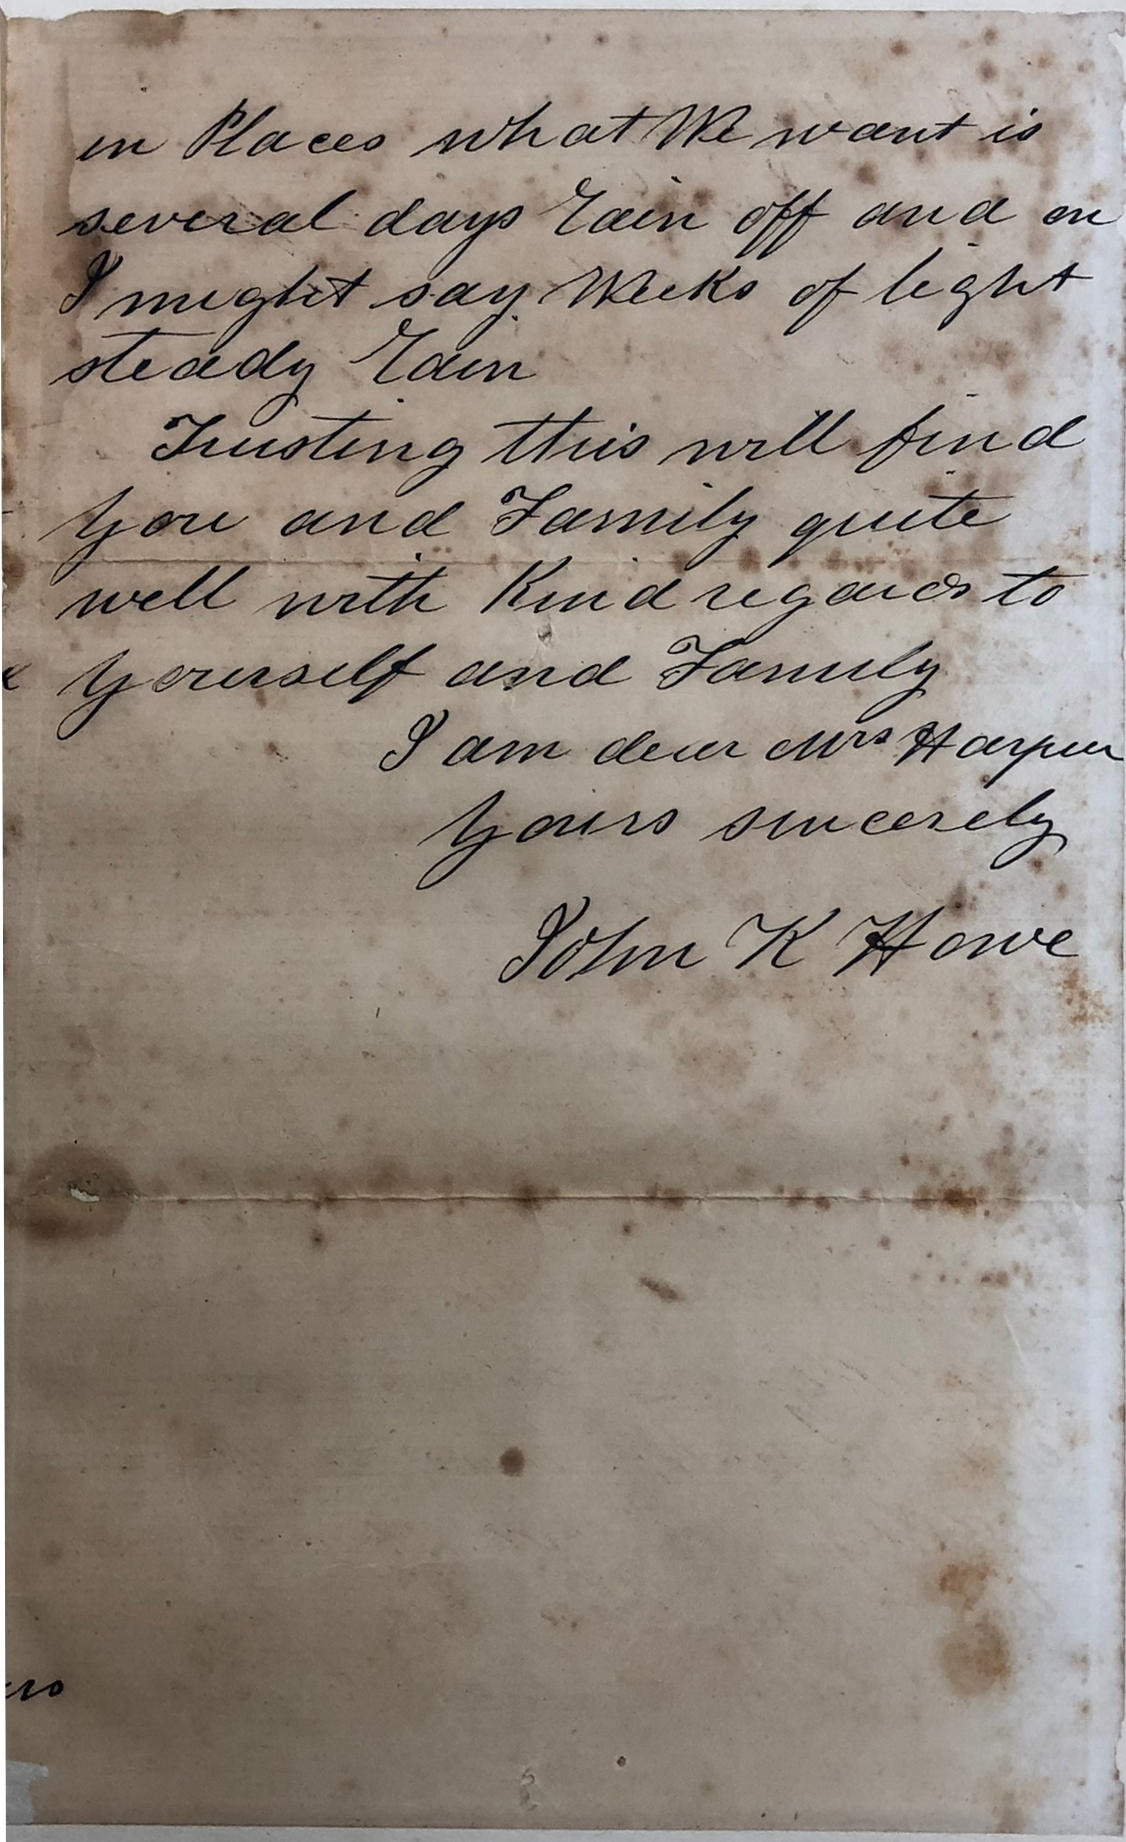 in Places what We want is
several days rain off and on
I might say Weeks of light
steady rain
Trusting this will find
you and Family quite
well with Kind regards to
yourself and Family
I am dear Mrs Harper
Yours sincerely
John K Howe